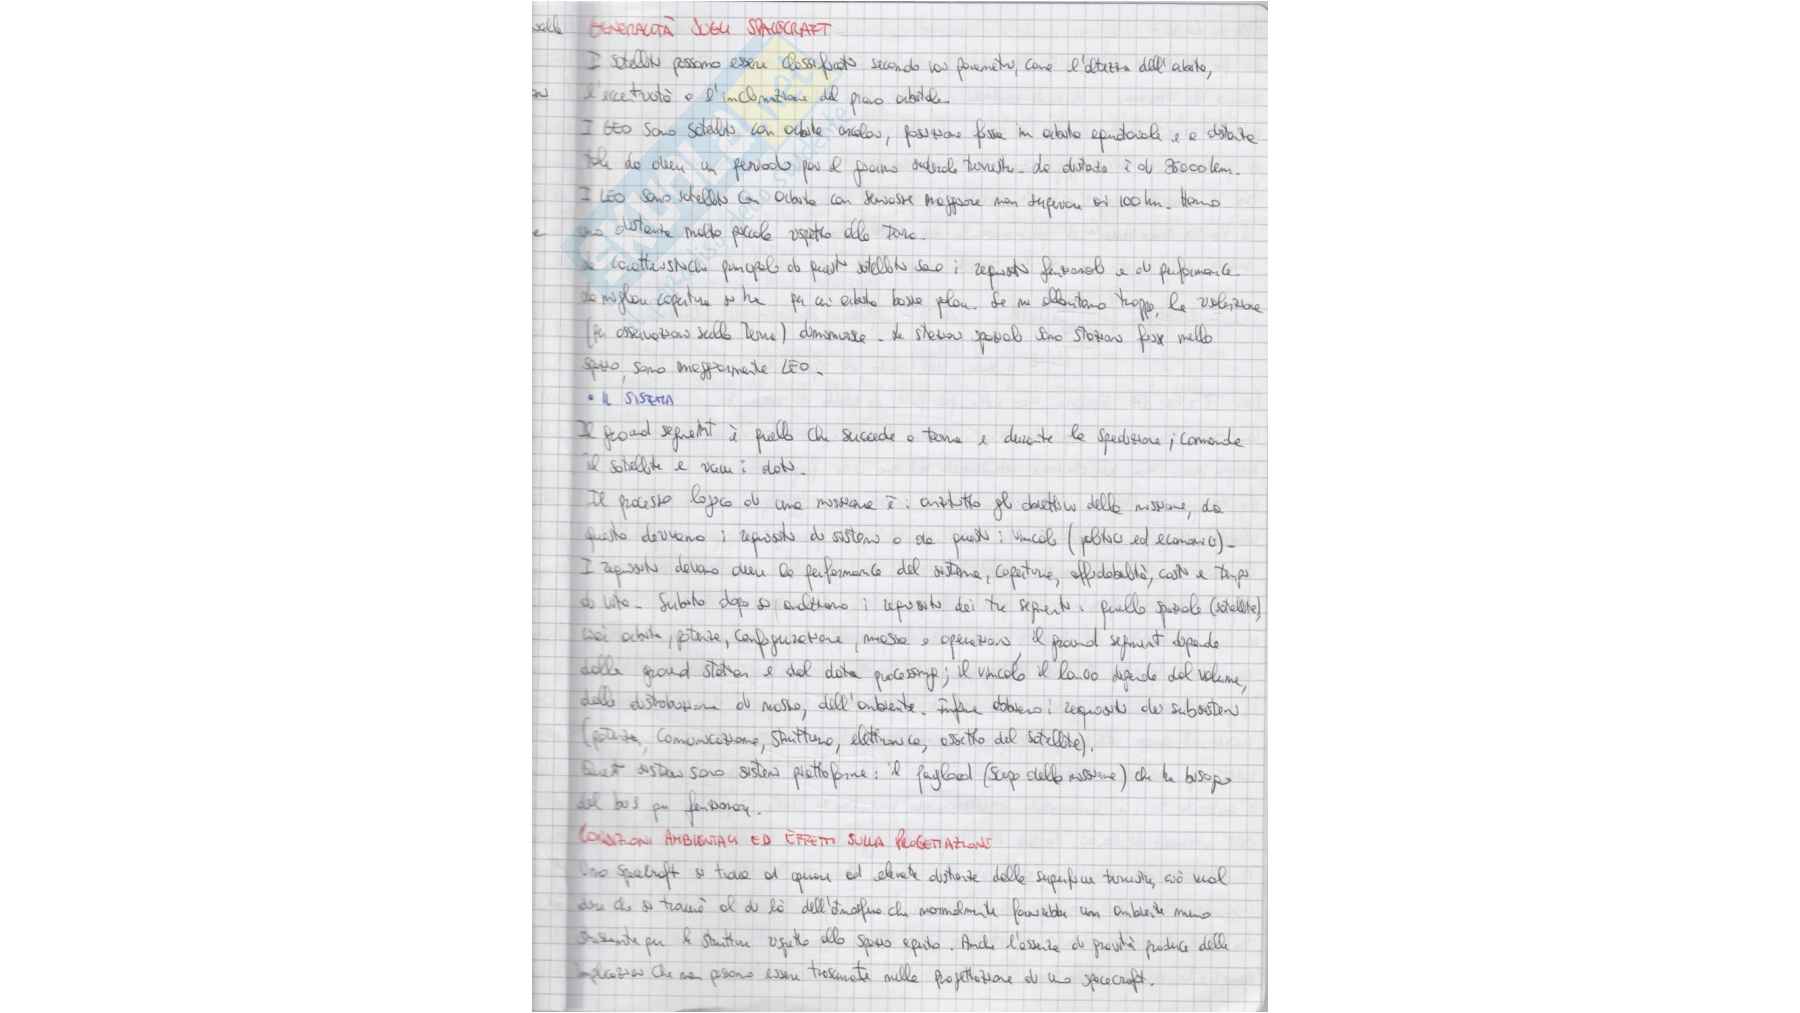 GENERALITÀ SUGLI SPACECRAFT
I satelliti possono essere classificati secondo vari parametri, come l'altezza dell'orbita,
l'eccentricità e l'inclinazione del piano orbitale.
I GEO sono satelliti con orbite circolari, posizione fissa in orbita equatoriale e a distanze
tali da avere un periodo pari al giorno siderale terrestre. La distanza è di 36000 km.
I LEO sono satelliti con orbite con semiasse maggiore non superiore ai 100 km. Hanno
una distanza molto piccola rispetto alla Terra.
Le caratteristiche principali di questi satelliti sono i requisiti funzionali e di performance.
La migliore copertura si ha per orbite basse. Se mi allontano troppo, la risoluzione
(per osservazioni sulla Terra) diminuisce. Le stazioni spaziali sono stazioni fisse nello
spazio, sono maggiormente LEO.
• IL SISTEMA
Il ground segment è quello che succede a terra e durante la spedizione; comanda
il satellite e i dati.
Il processo logico di una missione è: anzitutto gli obiettivi della missione, da
questo derivano i requisiti di sistema e da questi i vincoli (politici ed economici).
I requisiti devono dare le performance del sistema, copertura, affidabilità, costi e tempo
di vita. Subito dopo si analizzano i requisiti dei tre segmenti: quello spaziale (satellite)
cioè orbita, potenza, configurazione, massa e operazioni, il ground segment dipende
dalla ground station e dal data processing; il vincolo il lancio dipende dal volume,
dalla distribuzione di massa, dell'ambiente. Infine abbiamo i requisiti dei subsistemi
(potenza, comunicazione, struttura, elettronica, assetto del satellite).
Questi sistemi sono sistemi piattaforma: il payload (scopo della missione) che ha bisogno
del bus per funzionare.
CONDIZIONI AMBIENTALI ED EFFETTI SULLA PROGETTAZIONE
Uno spacecraft si trova ad operare ad elevate distanze dalla superficie terrestre, ciò vuol
dire che si troverà al di là dell'atmosfera che normalmente fornirebbe un ambiente meno
stressante per le strutture rispetto allo spazio aperto. Anche l'assenza di gravità produce delle
implicazioni che non possono essere trascurate nella progettazione di uno spacecraft.